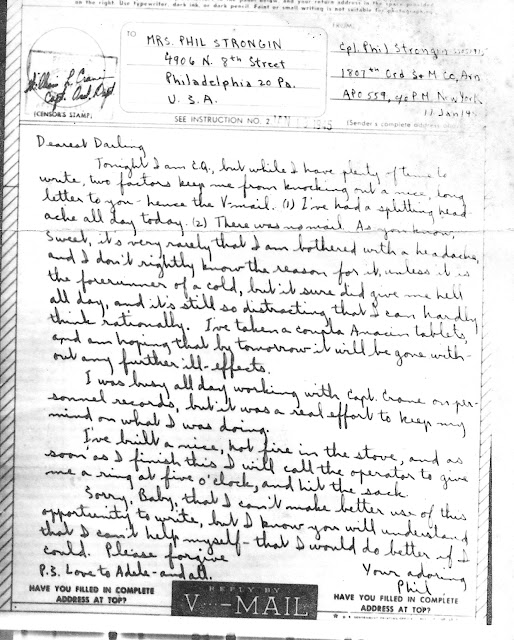 on the right. Use typewriter, dark ink, or dark pencil. Faint or small writing is not suitable for photographing.
TO
FROM
MRS. PHIL STRONGIN
4906 N. 8th Street
Philadelphia 20 Pa.
U.S.A.
Cpl. Phil Strongin
1807th Ord S&M Co, Avn
APO 559, c/o P.M. New York
17 Jan 1945
William L Crane
Capt. Ord. Dept
(CENSOR'S STAMP)
SEE INSTRUCTION NO. 2
(Sender's complete address above)
Dearest Darling
Tonight I am C.Q., but while I have plenty of time to
write, two factors keep me from knocking out a nice, long
letter to you - hence the V-mail. (1) I've had a splitting head
ache all day today. (2) There was no mail. As you know,
Sweet, it's very rarely that I am bothered with a headache,
and I don't rightly know the reason for it, unless it is
the forerunner of a cold, but it sure did give me hell
all day, and it's still so distracting that I can hardly
think rationally. I've taken a coupla Anacin tablets,
and am hoping that by tomorrow it will be gone with-
out any further ill-effects.
I was busy all day working with Capt. Crane on per-
sonnel records, but it was a real effort to keep my
mind on what I was doing.
I've built a nice, hot fire in the stove, and as
soon as I finish this I will call the operator to give
me a ring at five o'clock, and hit the sack.
Sorry, Baby, that I can't make better use of this
opportunity to write, but I know you will understand
that I can't help myself - that I would do better if I
could. Please forgive
Your adoring
Phil
P.S. Love to Adele - and all.
HAVE YOU FILLED IN COMPLETE
ADDRESS AT TOP?
REPLY BY
V···-MAIL
HAVE YOU FILLED IN COMPLETE
ADDRESS AT TOP?